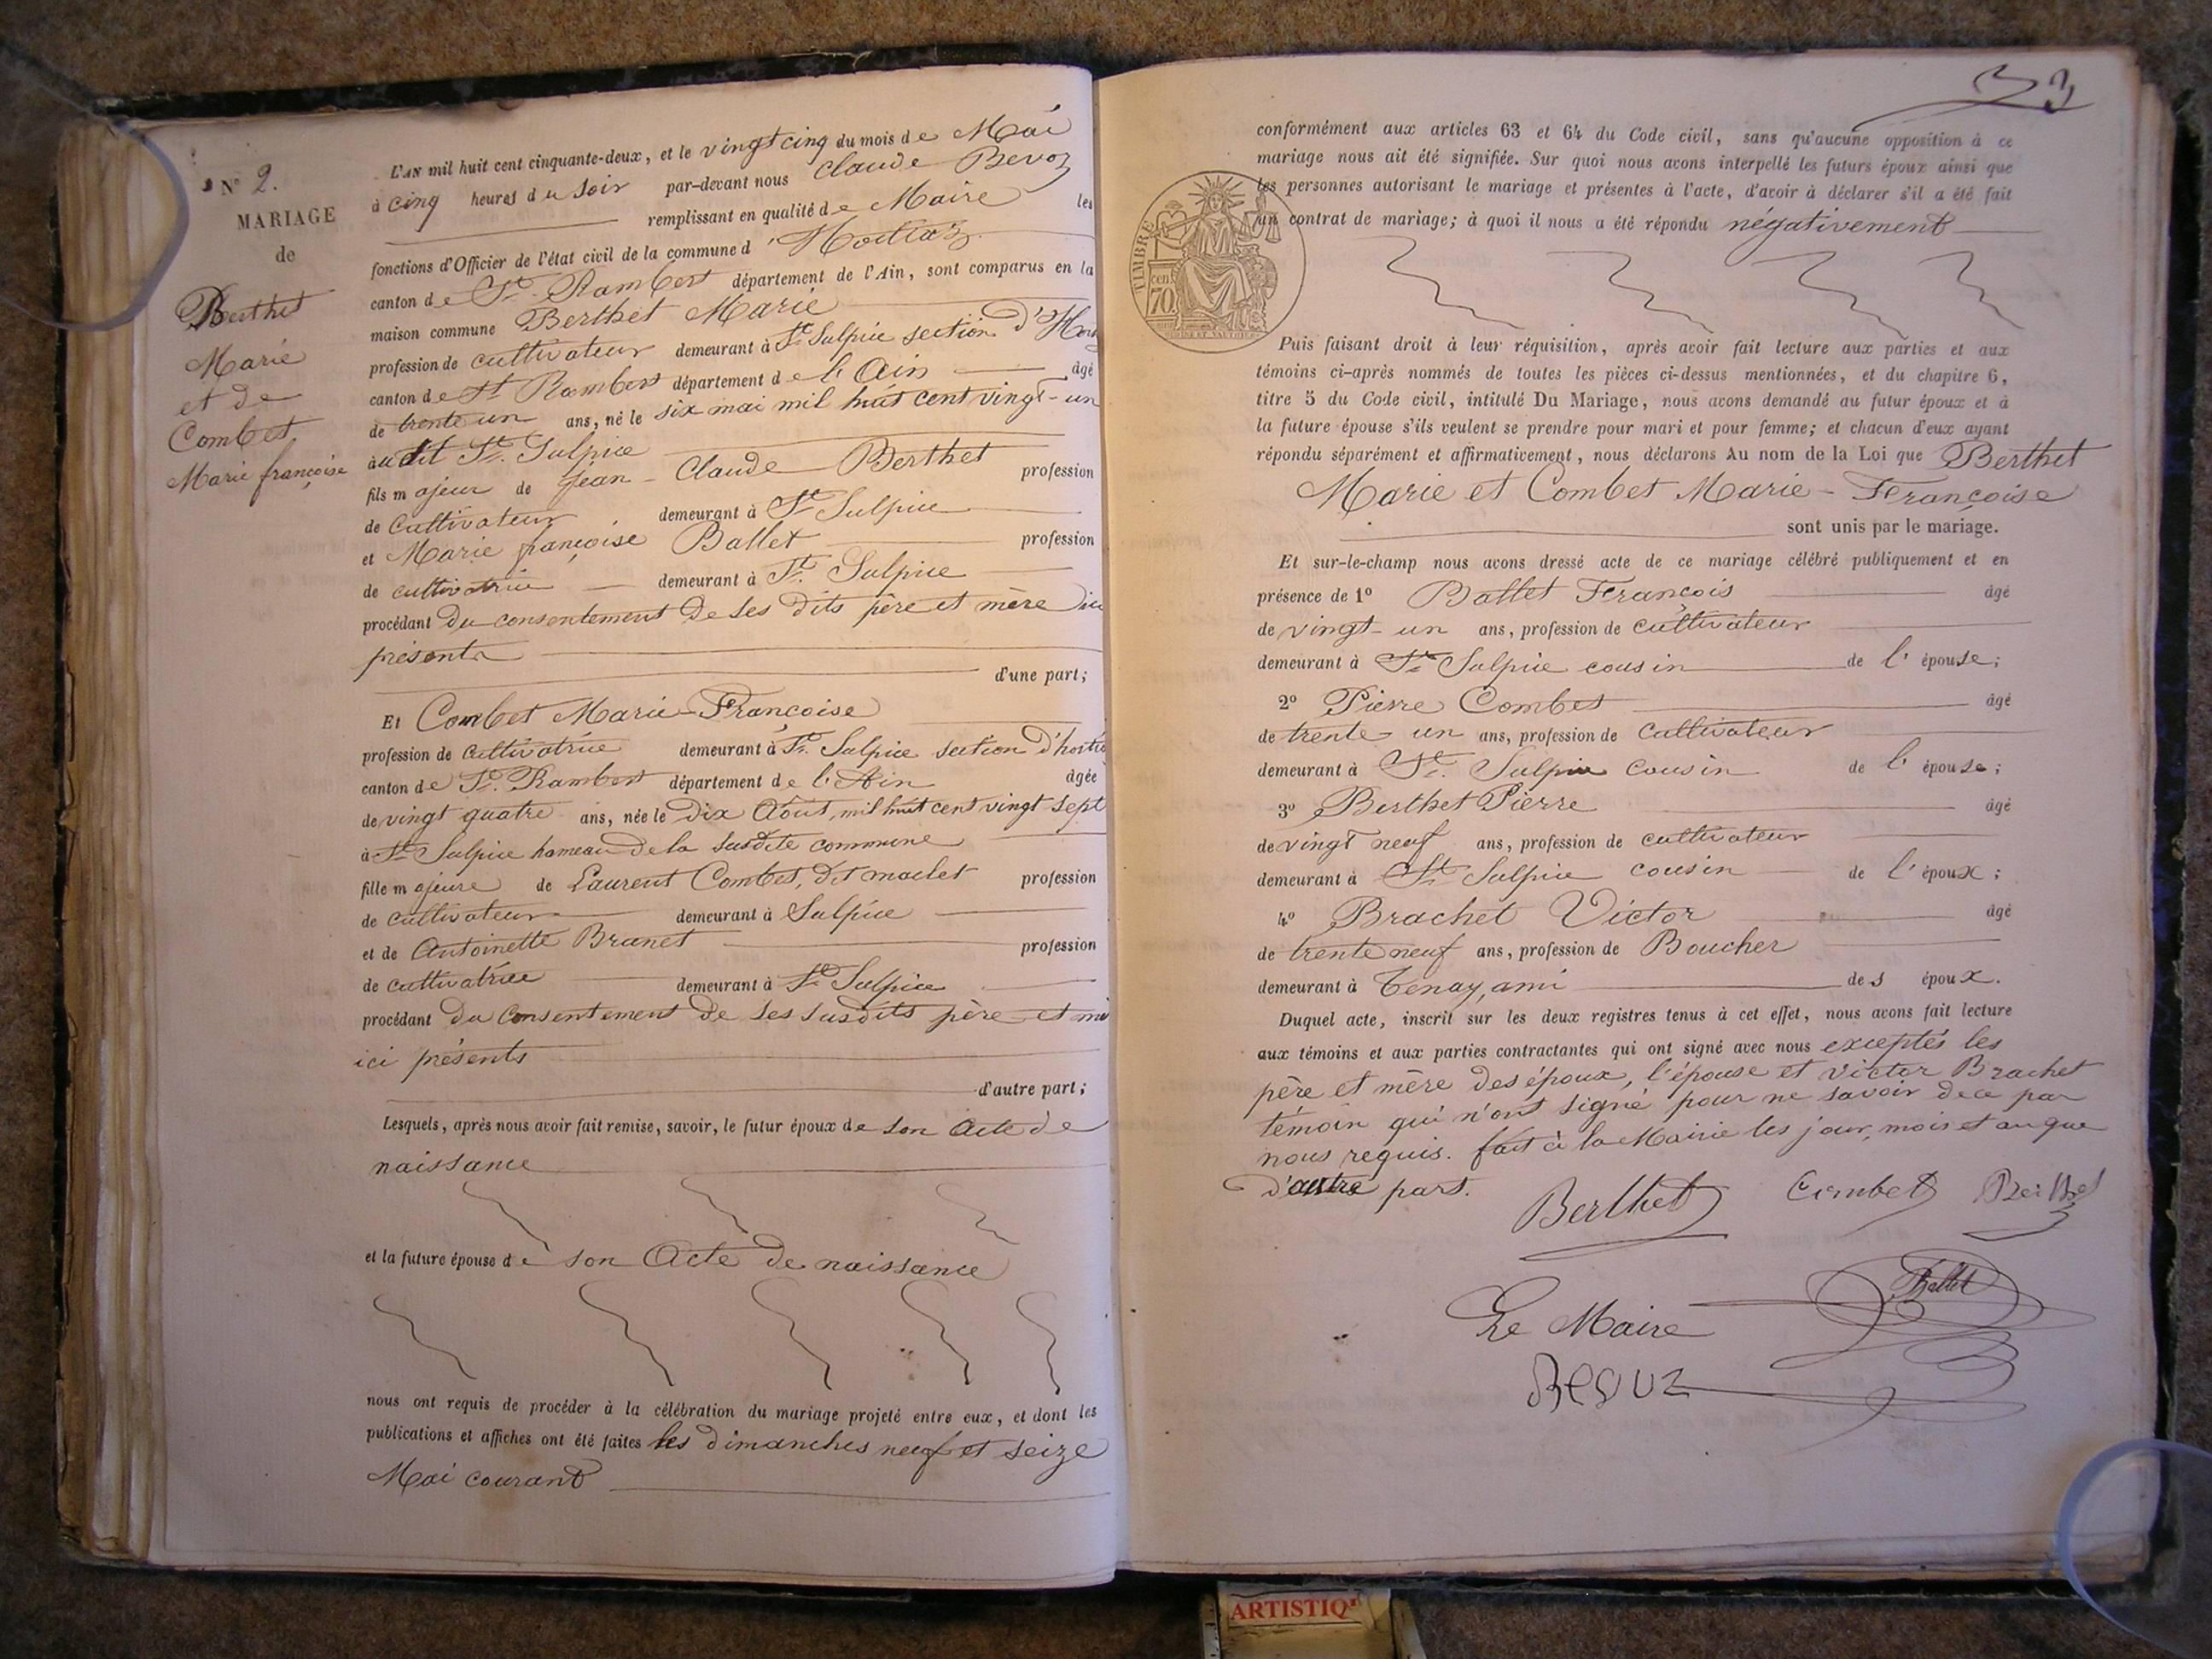 N° 2.
MARIAGE
de
Berthet
Marie
et de
Combet
Marie françoise
L'AN mil huit cent cinquante-deux, et le vingt cinq du mois de Mai
à cinq heures du soir par-devant nous Claude Bevoz
remplissant en qualité de Maire les
fonctions d'Officier de l'état civil de la commune d'
canton de St. Rambert département de l'Ain, sont comparus en la
maison commune Berthet Marie
profession de cultivateur demeurant à St. Sulpice section d'
canton de St Rambert département de l'Ain âgé
de trente un ans, né le six mai mil huit cent vingt-un
au dit St. Sulpice
fils majeur de Jean-Claude Berthet profession
de Cultivateur demeurant à St Sulpice
et Marie françoise Ballet profession
de cultivatrice demeurant à St. Sulpice
procédant du consentement de ses dits père et mère ici
présents
d'une part;
Et Combet Marie-Françoise
profession de cultivatrice demeurant à St. Sulpice section d'
canton de St. Rambert département de l'Ain âgée
de vingt quatre ans, née le Dix Août, mil huit cent vingt sept
à St Sulpice hameau de la susdite commune
fille majeure de Laurent Combet, dit maclet profession
de cultivateur demeurant à Sulpice
et de Antoinette Brunet profession
de cultivatrice demeurant à St Sulpice
procédant du Consentement de ses susdits père et
ici présents
d'autre part;
Lesquels, après nous avoir fait remise, savoir, le futur époux de son Acte de
naissance
et la future épouse de son Acte de naissance
nous ont requis de procéder à la célébration du mariage projeté entre eux, et dont les
publications et affiches ont été faites les dimanches neuf et seize
Mai courant
33
conformément aux articles 63 et 64 du Code civil, sans qu'aucune opposition à ce
mariage nous ait été signifiée. Sur quoi nous avons interpellé les futurs époux ainsi que
les personnes autorisant le mariage et présentes à l'acte, d'avoir à déclarer s'il a été fait
un contrat de mariage; à quoi il nous a été répondu négativement
TIMBRE
cen.
70.
Puis faisant droit à leur réquisition, après avoir fait lecture aux parties et aux
témoins ci-après nommés de toutes les pièces ci-dessus mentionnées, et du chapitre 6,
titre 5 du Code civil, intitulé Du Mariage, nous avons demandé au futur époux et à
la future épouse s'ils veulent se prendre pour mari et pour femme; et chacun d'eux ayant
répondu séparément et affirmativement, nous déclarons Au nom de la Loi que Berthet
Marie et Combet Marie-Françoise
sont unis par le mariage.
Et sur-le-champ nous avons dressé acte de ce mariage célébré publiquement et en
présence de 1° Ballet François âgé
de vingt-un ans, profession de cultivateur
demeurant à St Sulpice cousin de l'épouse;
2° Pierre Combet âgé
de trente-un ans, profession de Cultivateur
demeurant à St. Sulpice cousin de l'épouse;
3° Berthet Pierre âgé
de vingt neuf ans, profession de cultivateur
demeurant à St Sulpice cousin de l'époux;
4° Brachet Victor âgé
de trente neuf ans, profession de Boucher
demeurant à Tenay, ami des époux.
Duquel acte, inscrit sur les deux registres tenus à cet effet, nous avons fait lecture
aux témoins et aux parties contractantes qui ont signé avec nous exceptés les
père et mère des époux, l'épouse et Victor Brachet
témoin qui n'ont signé pour ne savoir de ce par
nous requis. fait à la Mairie les jour, mois et an que
d'autre part.
Berthet Combet Berthet
Ballet
Le Maire
BEVUZ
ARTISTIQ